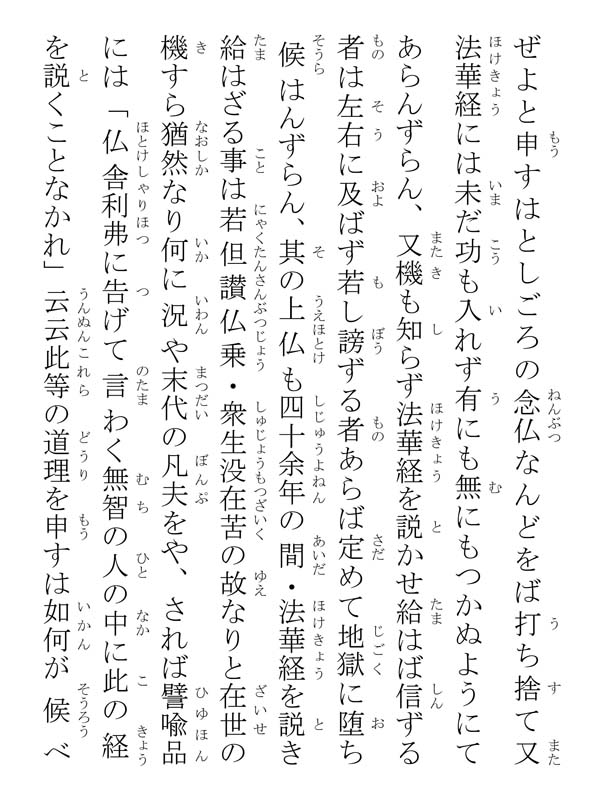 ぜよと申すはとしごろの念仏なんどをば打ち捨て又
法華経には未だ功も入れず有にも無にもつかぬようにて
あらんずらん、又機も知らず法華経を説かせ給はば信ずる
者は左右に及ばず若し謗ずる者あらば定めて地獄に堕ち
候はんずらん、其の上仏も四十余年の間・法華経を説き
給はざる事は若但讃仏乗・衆生没在苦の故なりと在世の
機すら猶然なり何に況や末代の凡夫をや、されば譬喩品
には「仏舎利弗に告げて言わく無智の人の中に此の経
を説くことなかれ」云云此等の道理を申すは如何が候べ